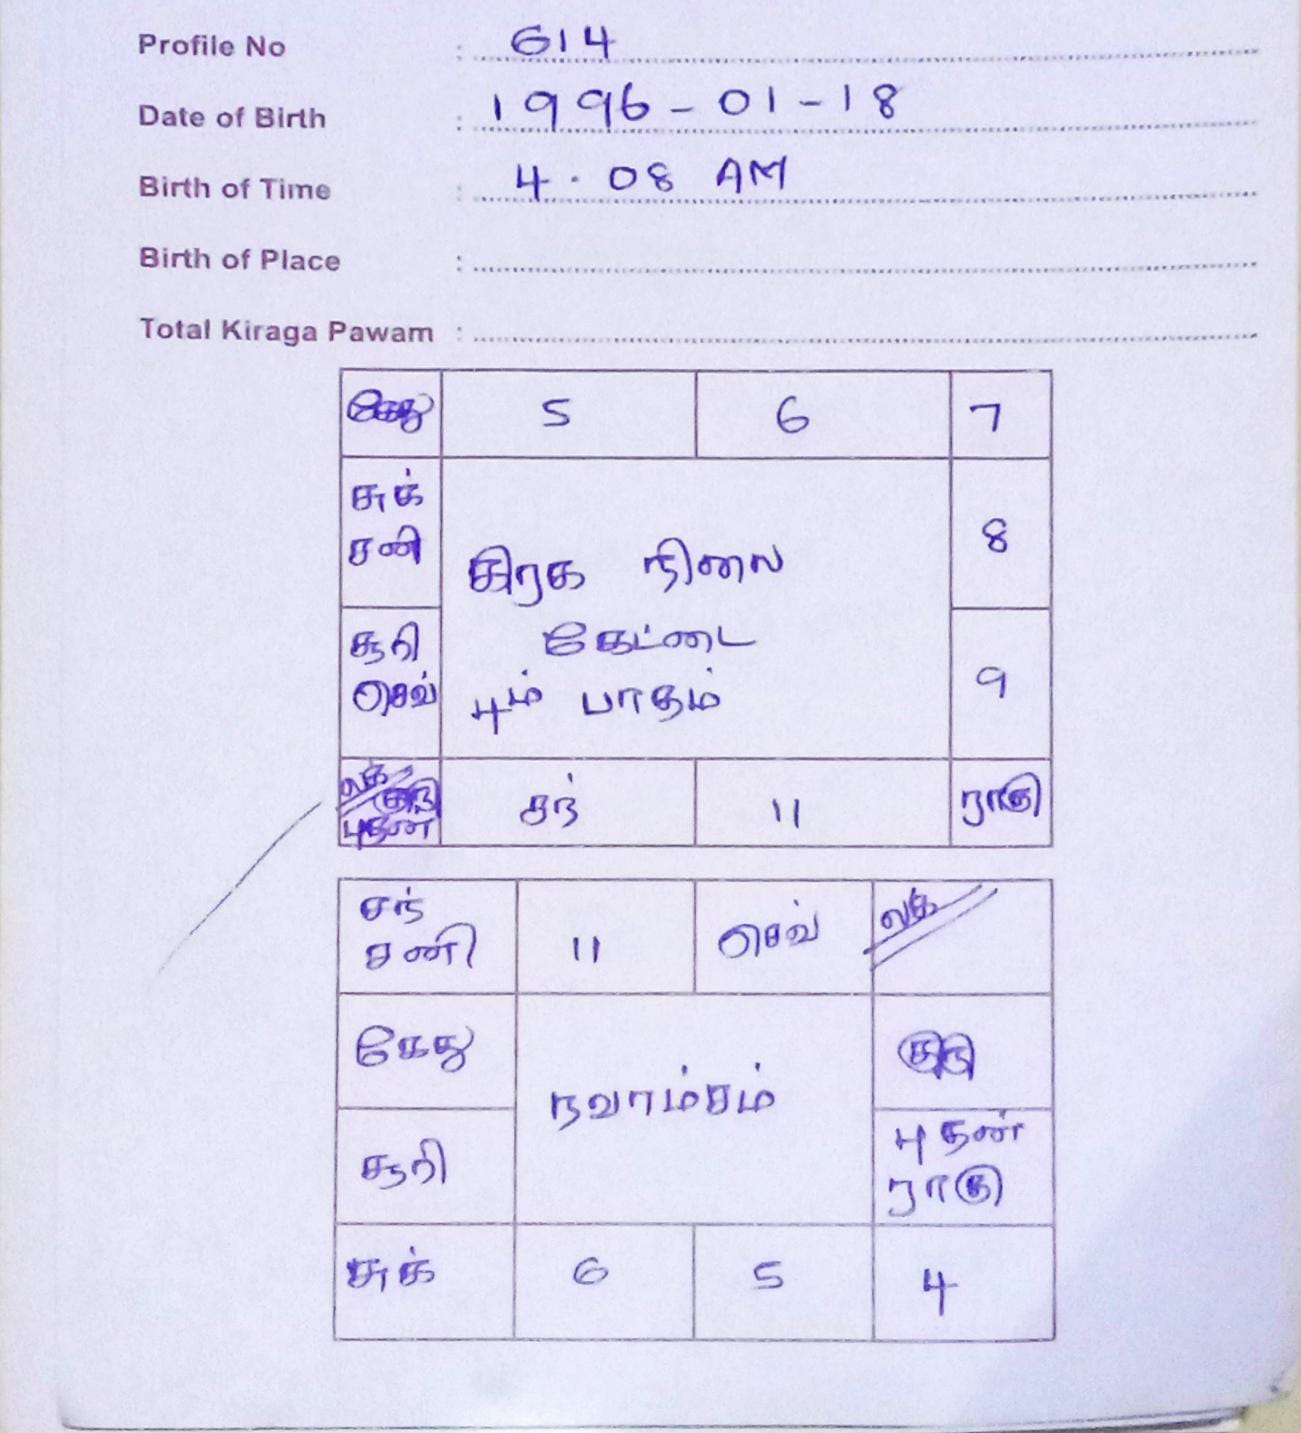 Profile No : 614
Date of Birth : 1996-01-18
Birth of Time : 4.08 AM
Birth of Place :
Total Kiraga Pawam :
கேது 5 6 7
சுக்
சனி
8
கிரக நிலை
கேட்டை
4ம் பாதம்
சூரி
செவ்
9
லக்
குரு
புதன்
சந் 11 ராகு
சந்
சனி
11 செவ் லக்
கேது
நவாம்சம்
குரு
சூரி
புதன்
ராகு
சுக் 6 5 4